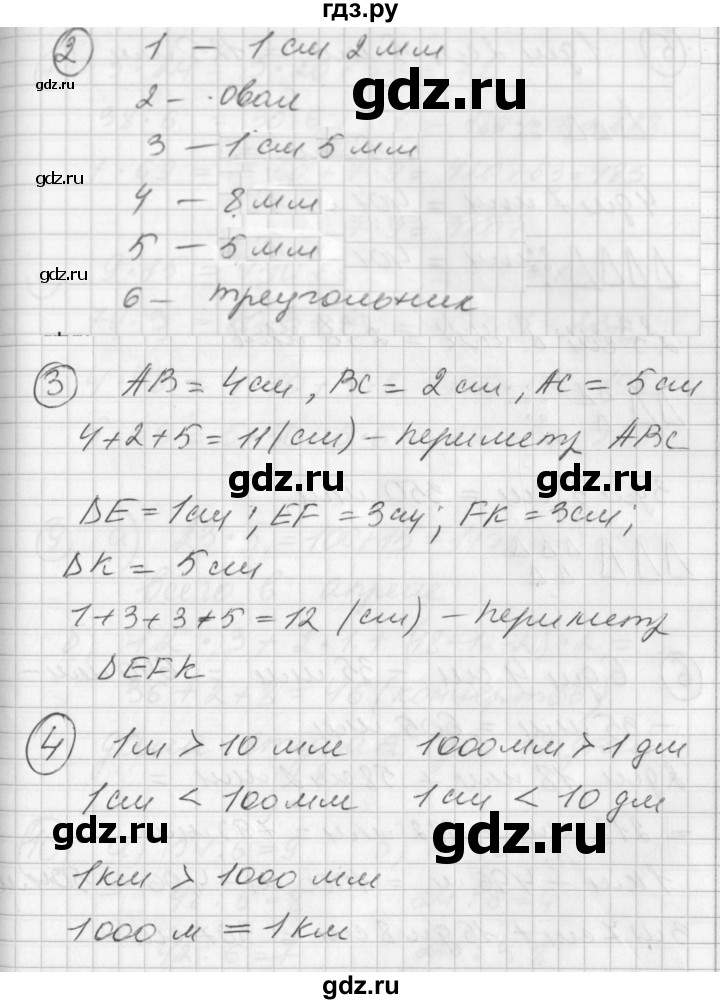 гдз.ру
② 1 – 1 см 2 мм
gdz.ru
2 – овал
gdz.ru
3 – 1 см 5 мм
gdz.ru
4 – 8 мм
5 – 5 мм
gdz.ru
6 – треугольник
③ AB = 4 см, BC = 2 см, AC = 5 см
4 + 2 + 5 = 11 (см) – периметр ABC
gdz.ru
gdz.ru
DE = 1 см; EF = 3 см; FK = 3 см;
DK = 5 см
1 + 3 + 3 + 5 = 12 (см) – периметр
DEFK
④ 1 м > 10 мм 1000 мм > 1 дм
1 см < 100 мм 1 см < 10 дм
gdz.ru
gdz.ru
1 км > 1000 мм
1000 м = 1 км
gdz.ru